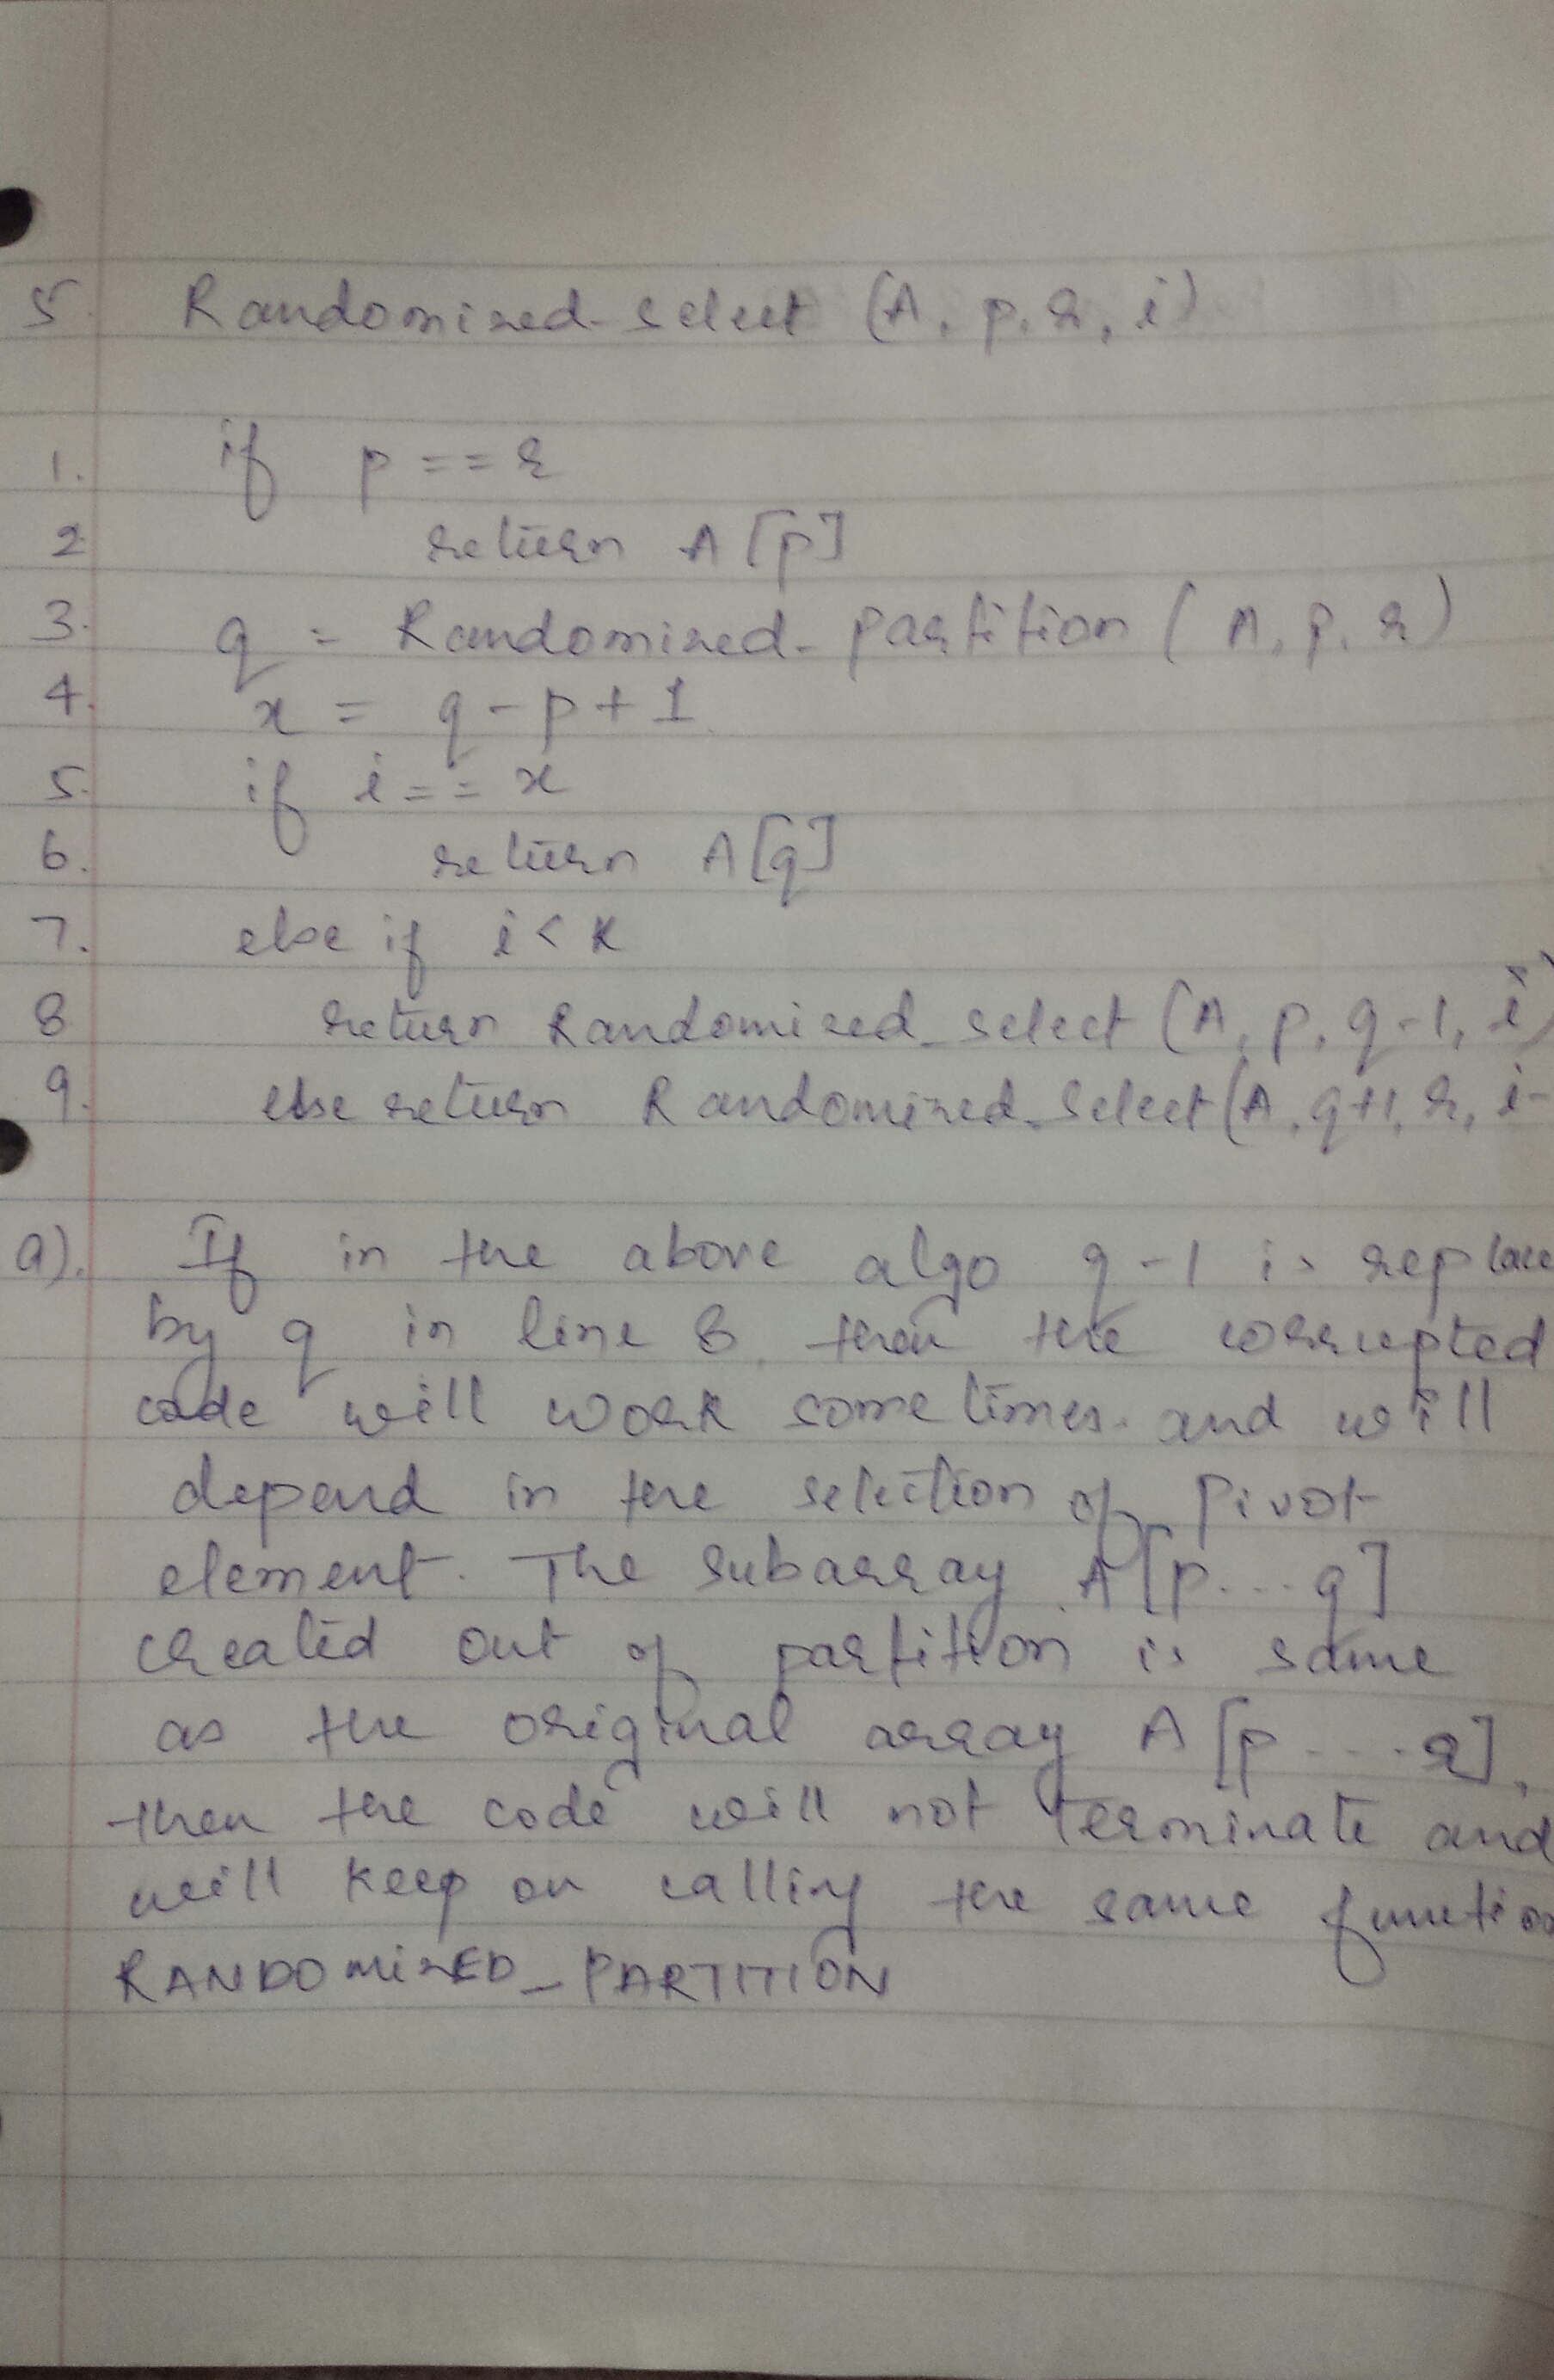 5. Randomized-select (A, p, r, i)
1. if p == r
2. return A[p]
3. q = Randomized-partition (A, p, r)
4. x = q - p + 1
5. if i == x
6. return A[q]
7. else if i < K
8. return Randomized_select (A, p, q-1, i)
9. else return Randomized_select (A, q+1, r, i-
a). If in the above algo q-1 is replace
by q in line 8, then the corrupted
code will work sometimes. and will
depend in the selection of pivot
element. The subarray A[p...q]
created out of partition is same
as the original array A[p....r],
then the code will not terminate and
will keep on calling the same function
RANDOMIZED_PARTITION